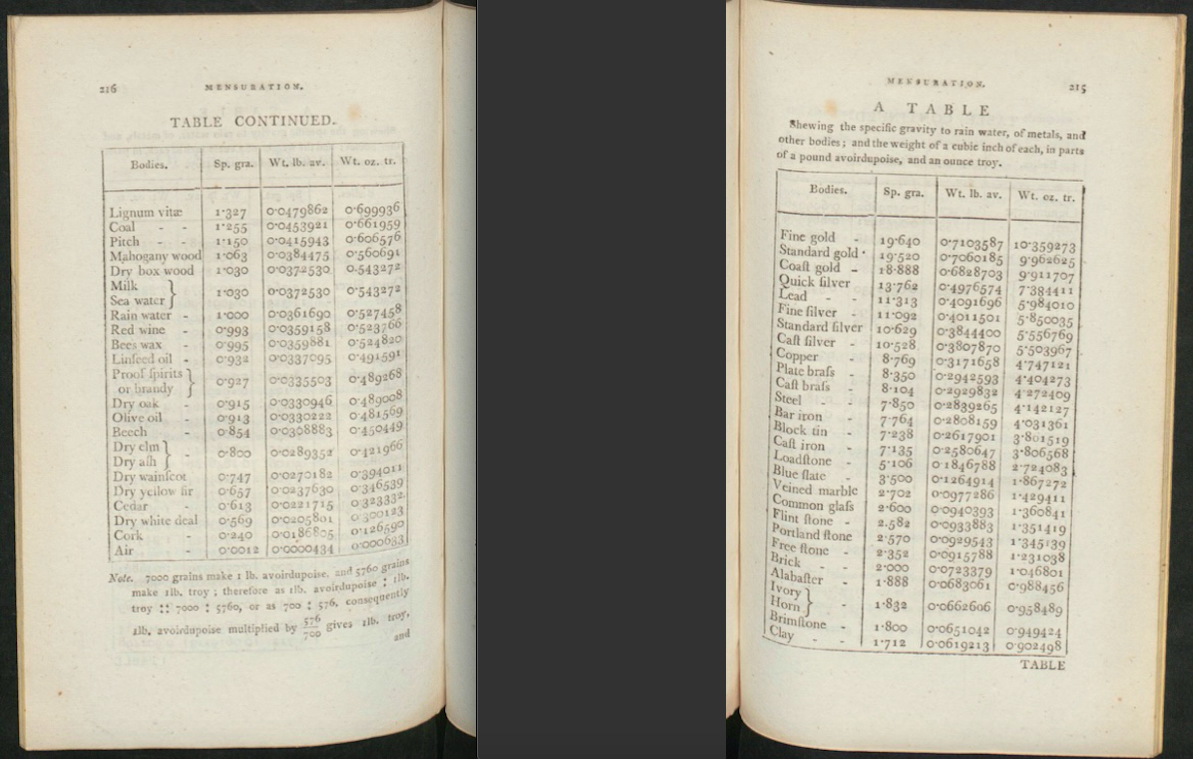 216 MENSURATION.
TABLE CONTINUED.
Bodies. Sp. gra. Wt. lb. av. Wt. oz. tr.
Lignum vitæ 1·327 0·0479862 0·699936
Coal - - 1·255 0·0453921 0·661959
Pitch - - 1·150 0·0415943 0·606576
Mahogany wood 1·063 0·0384475 0·560691
Dry box wood 1·030 0·0372530 0·543272
Milk
Sea water } 1·030 0·0372530 0·543272
Rain water - 1·000 0·0361690 0·527458
Red wine - 0·993 0·0359158 0·523766
Bees wax - 0·995 0·0359881 0·524820
Linſeed oil - 0·932 0·0337095 0·491591
Proof ſpirits
or brandy } 0·927 0·0335503 0·489268
Dry oak - 0·915 0·0330946 0·489008
Olive oil - 0·913 0·0330222 0·481569
Beech - 0·854 0·0308883 0·450449
Dry elm
Dry aſh } - 0·800 0·0289352 0·421966
Dry wainſcot 0·747 0·0270182 0·394011
Dry yellow fir 0·657 0·0237630 0·346539
Cedar - 0·613 0·0221715 0·323332
Dry white deal 0·569 0·0205801 0·300123
Cork - 0·240 0·0186805 0·126590
Air - 0·0012 0·0000434 0·000633
Note. 7000 grains make 1 lb. avoirdupoise, and 5760 grains
make 1lb, troy; therefore as 1lb. avoirdupoise : 1lb.
troy :: 7000 : 5760, or as 700 : 576, consequently
1lb. avoirdupoise multiplied by 576/700 gives 1lb. troy,
and
MENSURATION. 215
A TABLE
Shewing the specific gravity to rain water, of metals, and
other bodies; and the weight of a cubic inch of each, in parts
of a pound avoirdupoise, and an ounce troy.
Bodies. Sp. gra. Wt. lb. av. Wt. oz. tr.
Fine gold - 19·640 0·7103587 10·359273
Standard gold · 19·520 0·7060185 9·962625
Coaſt gold - 18·888 0·6828703 9·911707
Quick ſilver 13·762 0·4976574 7·384411
Lead - - 11·313 0·4091696 5·984010
Fine ſilver - 11·092 0·4011501 5·850035
Standard ſilver 10·629 0·3844400 5·556769
Caſt ſilver - 10·528 0·3807870 5·503967
Copper - 8·769 0·3171658 4·747121
Plate braſs - 8·350 0·2942593 4·404273
Caſt braſs - 8·104 0·2929832 4·272409
Steel - - 7·850 0·2839265 4·142127
Bar iron - 7·764 0·2808159 4·031361
Block tin - 7·238 0·2617901 3·801519
Caſt iron - 7·135 0·2580647 3·806568
Loadſtone - 5·106 0·1846788 2·724083
Blue ſlate - 3·500 0·1264914 1·867272
Veined marble 2·702 0·0977286 1·429411
Common glaſs 2·600 0·0940393 1·360841
Flint ſtone - 2.582 0·0933883 1·351419
Portland ſtone 2·570 0·0929543 1·345139
Free ſtone - 2·352 0·0915788 1·231038
Brick - 2·000 0·0723379 1·046801
Alabaſter - 1·888 0·0683061 0·988456
Ivory
Horn } - 1·832 0·0662606 0·958489
Brimſtone - 1·800 0·0651042 0·949424
Clay - - 1·712 0·0619213 0·902498
TABLE